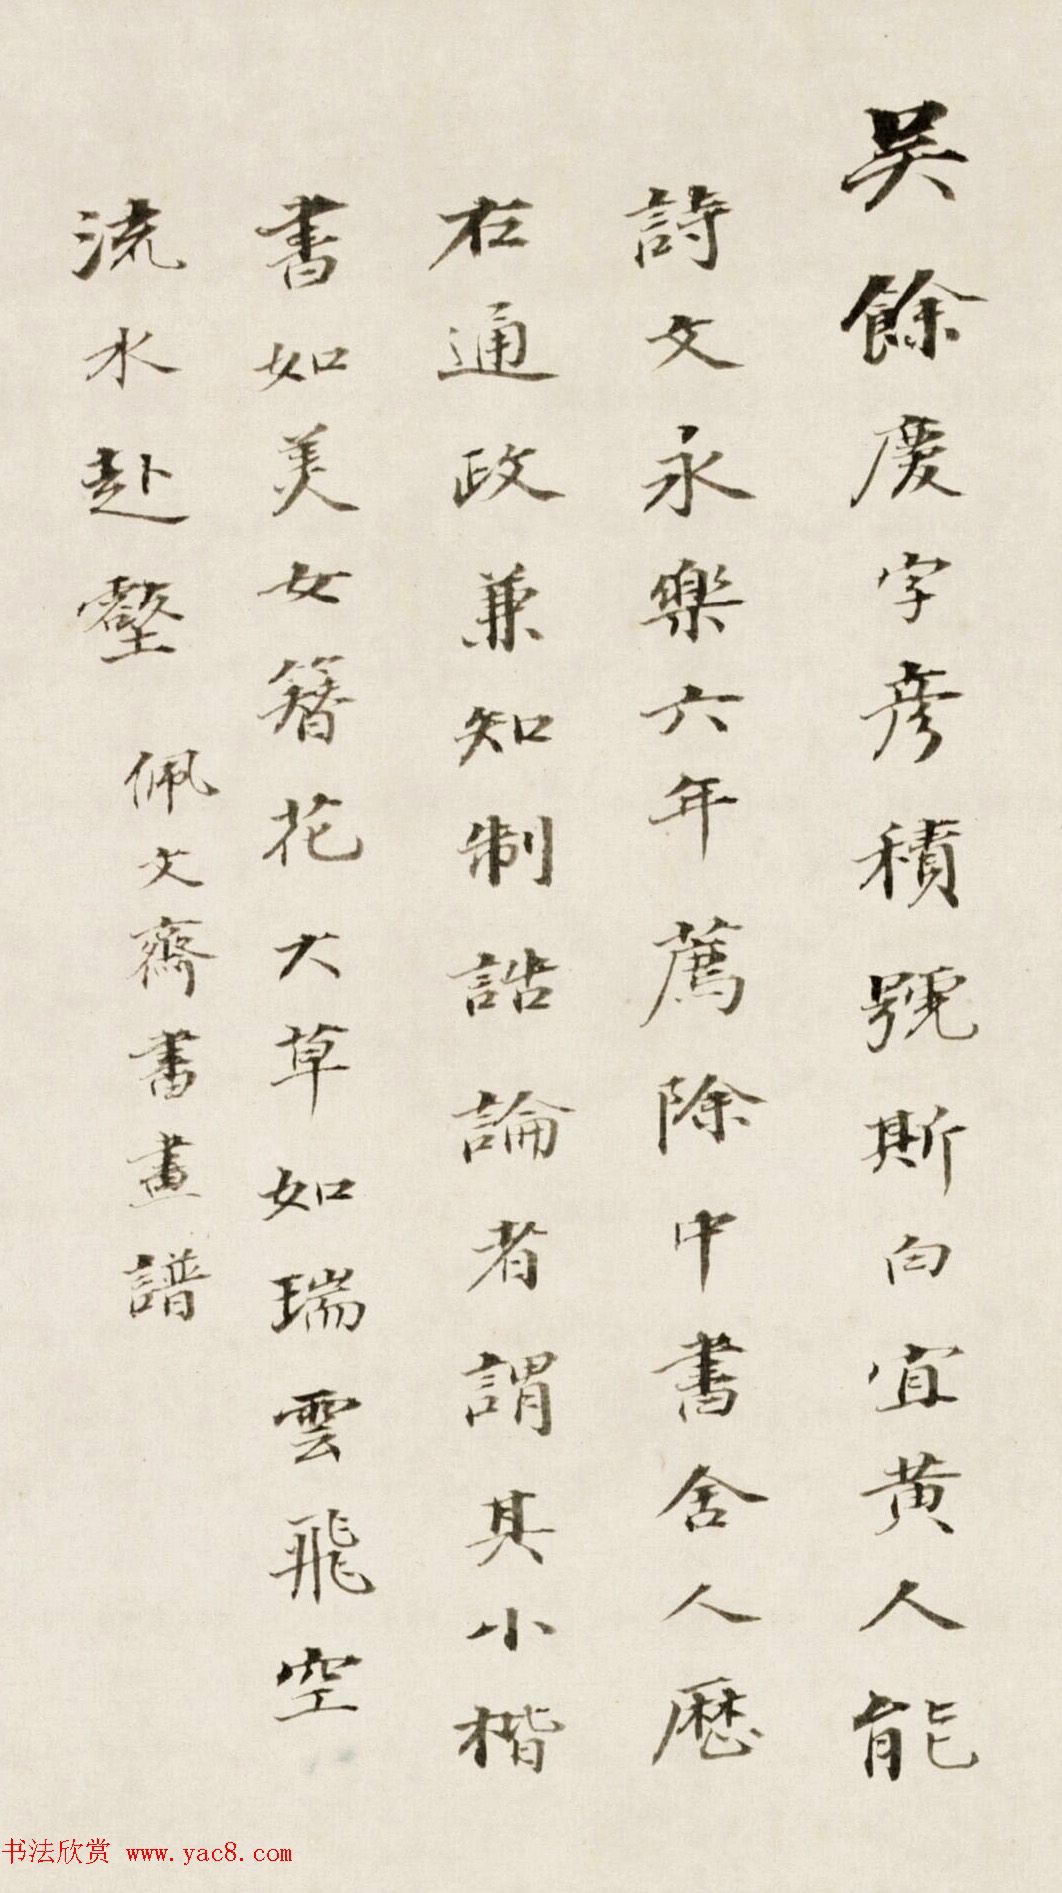 吴餘慶字彦積號斯白宜黄人能
詩文永樂六年薦除中書舍人歷
右通政兼知制誥論者謂其小楷
書如美女簪花大草如瑞雲飛空
流水赴壑
佩文齋書畫譜
书法欣赏 www.yac8.com